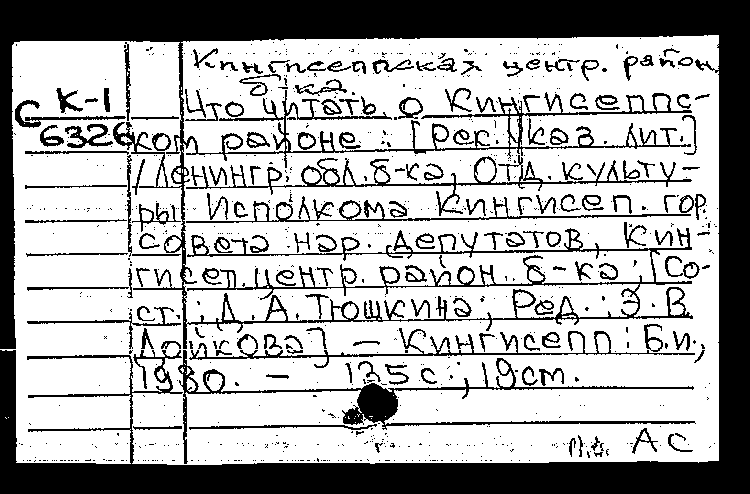 Кингисеппская центр. район.
б-ка.
С К-1
6326
Что читать о Кингисеппс-
ком районе : [Рек. указ. лит.]
/ Ленингр. обл. б-ка, Отд. культу-
ры Исполкома Кингисеп. гор.
совета нар. депутатов, Кин-
гисеп. центр. район. б-ка ; [Со-
ст. : Д. А. Тюшкина ; Ред. : Э. В.
Лойкова] . — Кингисепп : Б.и.,
1980. — 135 с ; 19 cm.
п.о. АС